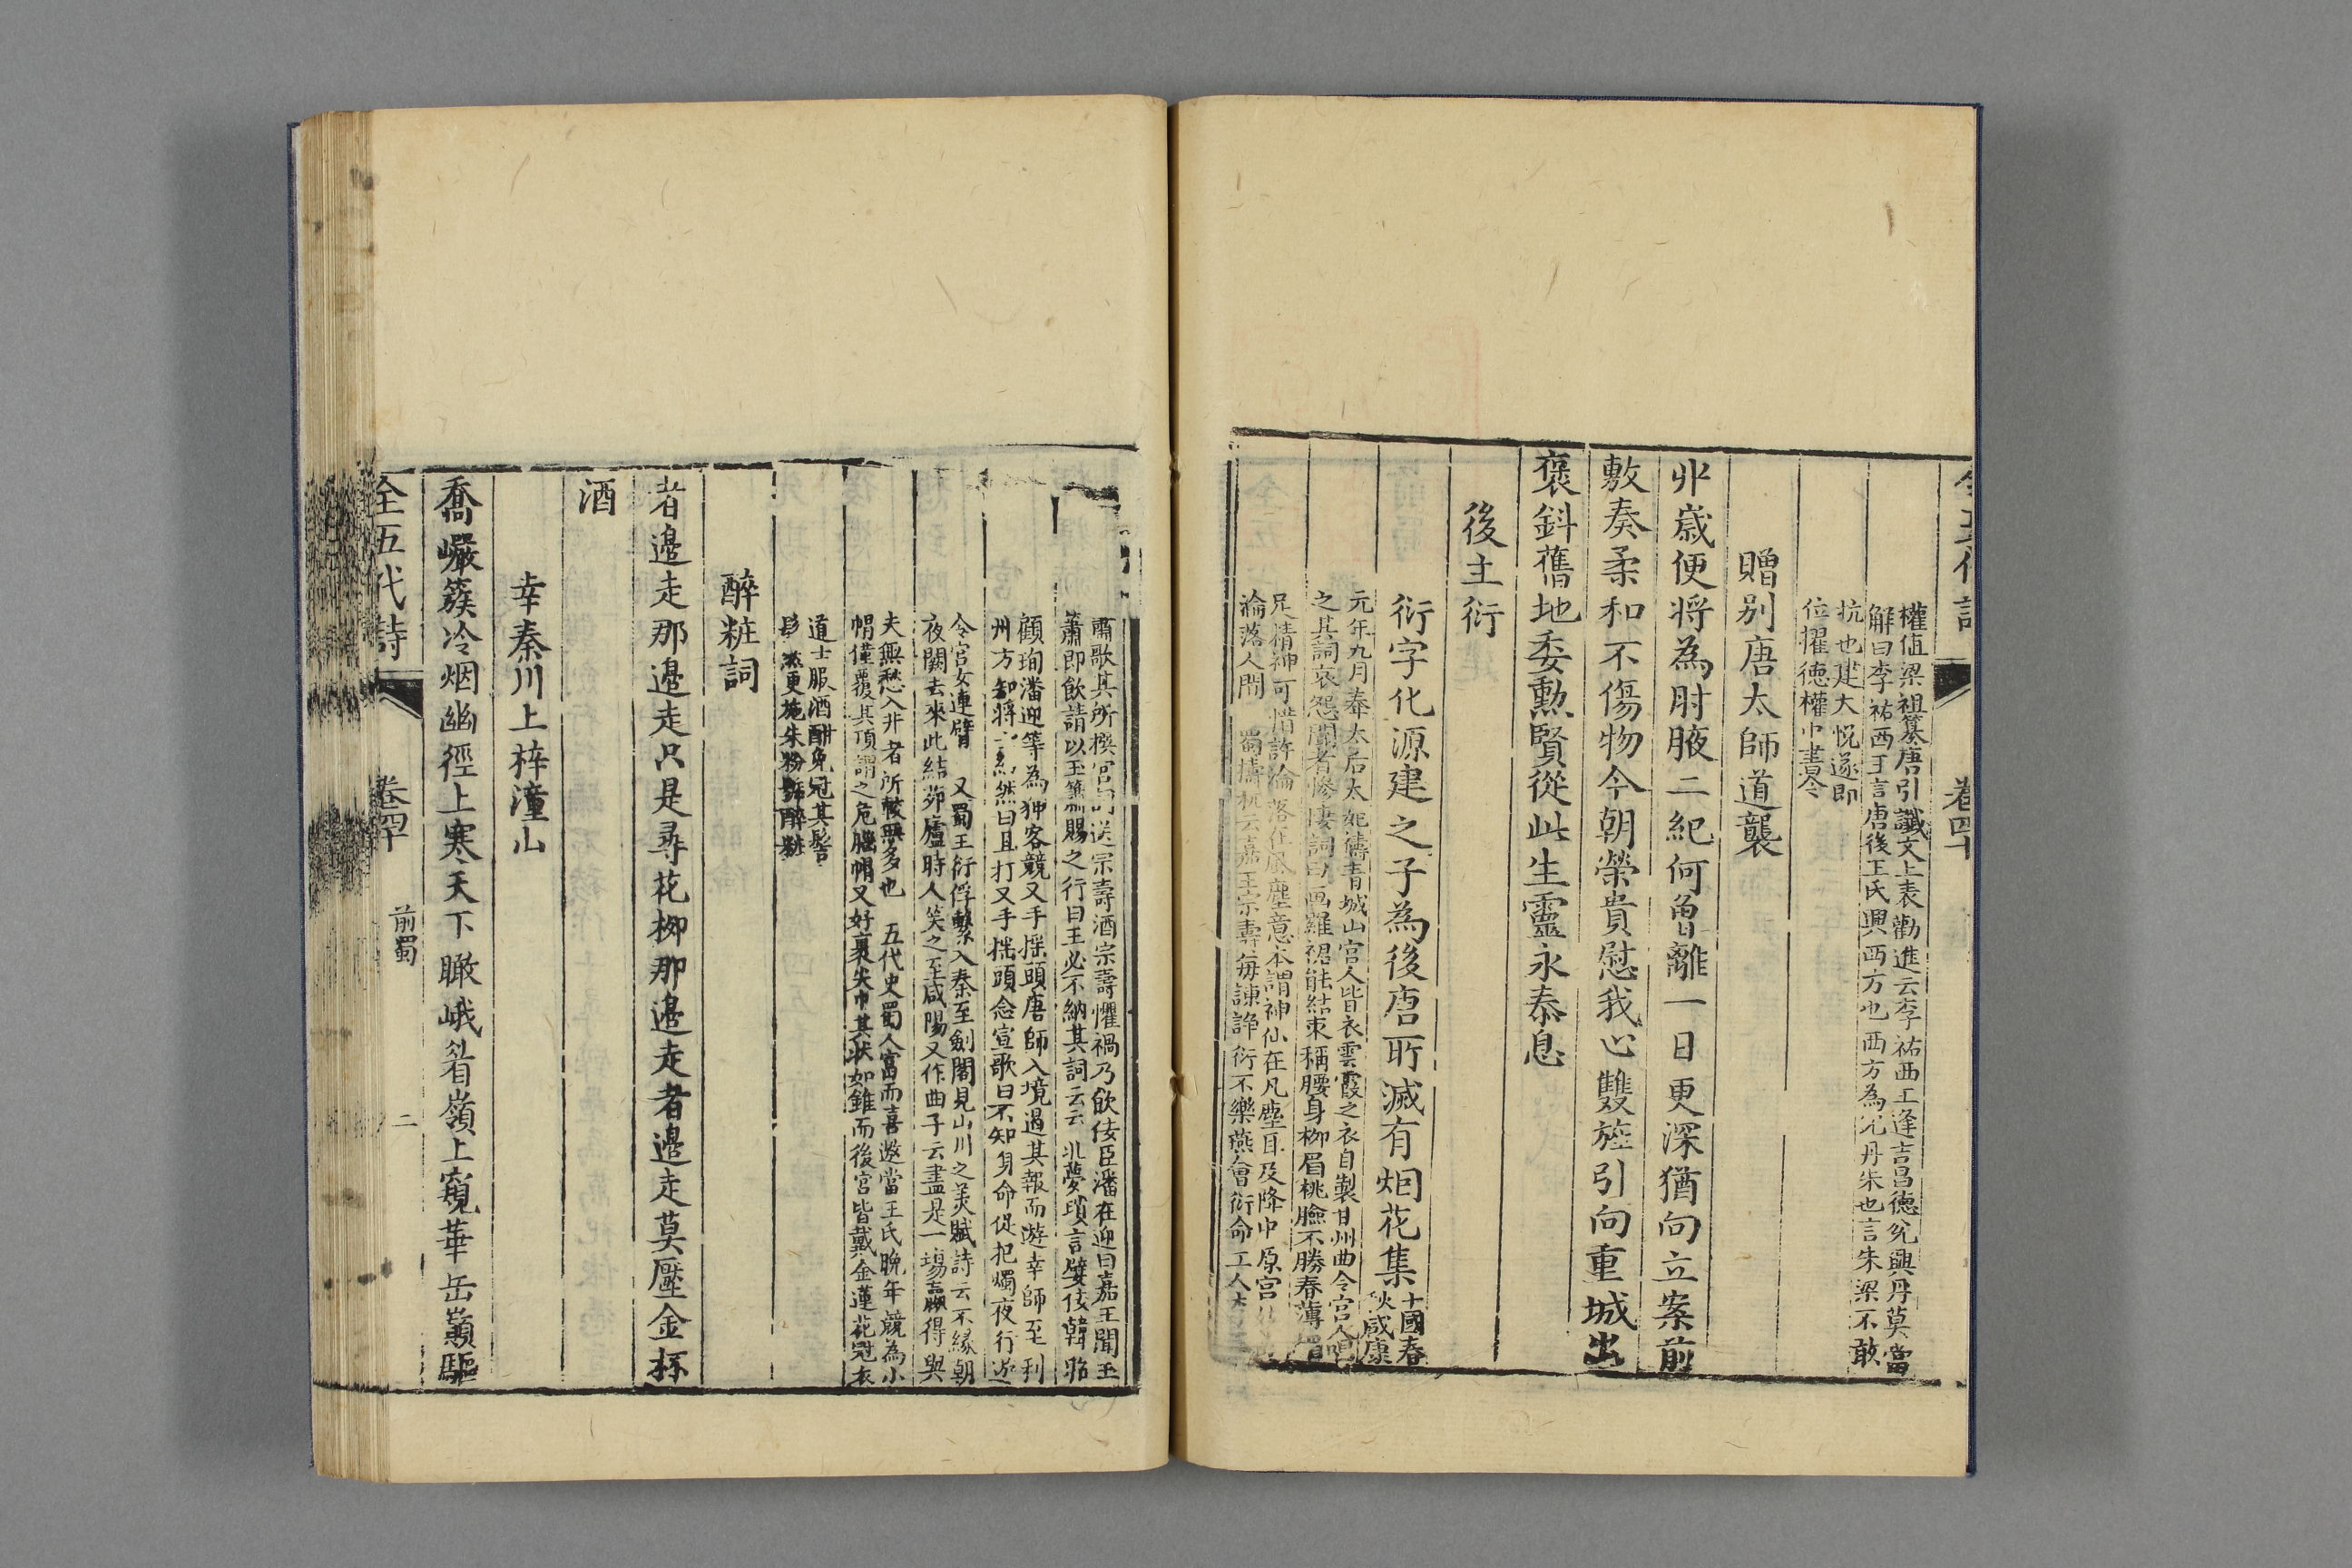 全五代詩
卷四十
權值梁祖篡唐引讖文上表勸進云李祐西王逢吉昌德兊興丹莫當
解曰李祐西王言唐後王氏興西方也西方為兊丹朱也言朱梁不敢
抗也建大悅遂即
位擢德權中書令
贈别唐太師道襲
丱歲便將為肘腋二紀何曾離一日更深猶向立案前
敷奏柔和不傷物今朝榮貴慰我心雙旌引向重城出
褒斜舊地委勲賢從此生靈永泰息
後主衍
衍字化源建之子為後唐所滅有烟花集
十國春
秋咸康
元年九月奉太后太妃禱青城山宮人皆衣雲霞之衣自製甘州曲令宮人唱
之其詞哀怨聞者慘悽詞曰畫羅裙能結束稱腰身柳眉桃臉不勝春薄媚
足精神可惜許淪落在風塵意本謂神仙在凡塵耳及降中原宮
淪落人間 蜀檮杌云嘉王宗壽每諫諍衍不樂燕會衍命工人李
肅歌其所撰宮詞送宗壽酒宗壽懼禍乃飲佞臣潘在迎曰嘉王聞玉
蕭即飲請以玉簫賜之行曰王必不納其詞云云 北夢瑣言嬖佞韓昭
顧珣潘迎等為狎客競又手揺頭唐師入境過其報而遊幸師至利
州方知將 然曰且打又手揺頭念宣歌曰不知身命促把燭夜行遊
令宮女連臂 又蜀王衍俘繫入秦至劍閣見山川之美賦詩云不緣朝
夜闕去來此結茆廬時人笑之至咸陽又作曲子云盡是一塲贏得與
夫無愁入非者所較無多也 五代史蜀人富而喜遨當王氏晚年競為小
帽僅覆其頂謂之危腦帽又好裹尖巾其狀如錐而後宮皆戴金蓮花冠衣
道士服酒酣免冠其髻
髿 然更施朱粉號醉粧
醉粧詞
者邉走那邉走只是尋花柳那邉走者邉走莫壓金杯
酒
幸秦川上梓潼山
喬巖簇冷烟幽徑上寒天下瞰峨眉嶺上窺華岳巔驅
全五代詩
卷四十
前蜀
二